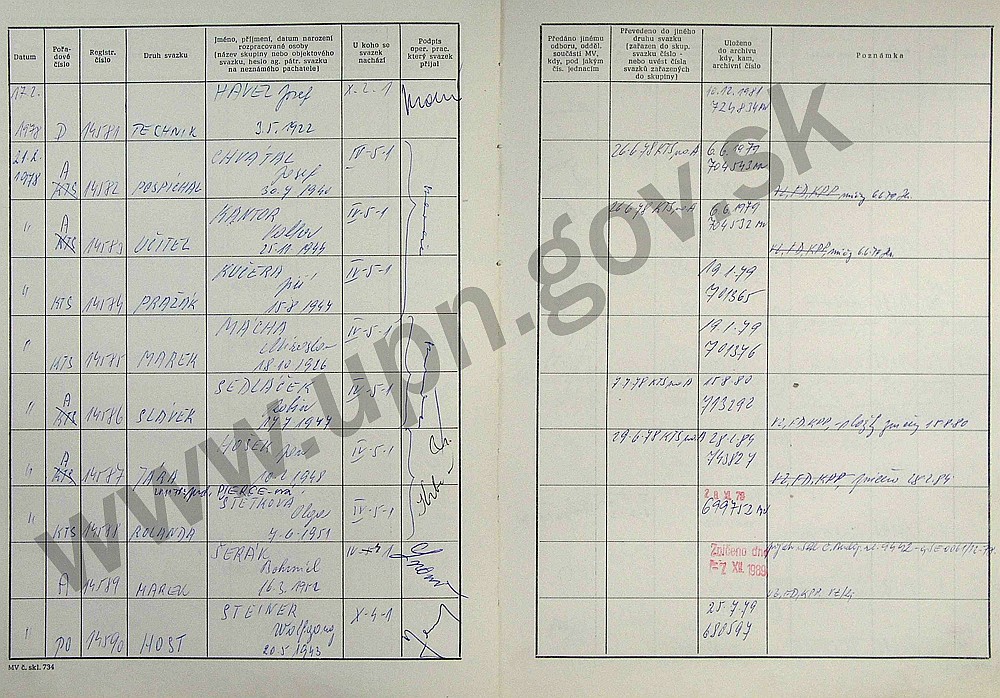 Datum
Pořadové číslo
Registr. číslo
Druh svazku
Jméno, příjmení, datum narození rozpracované osoby (název skupiny nebo objektového svazku, heslo ag. pátr. svazku na neznámého pachatele)
U koho se svazek nachází
Podpis oper. prac. který svazek přijal
Předáno jinému odboru, odděl. součásti MV, kdy, pod jakým čís. jednacím
Převedeno do jiného druhu svazku (zařazen do skup. svazku číslo - nebo uvést čísla svazků zařazených do skupiny)
Uloženo do archivu kdy, kam, archivní číslo
Poznámka
17.2. 1978 D 14581 TECHNIK HAVEL Josef 3.5.1922 X-2-1
10.12.1981 724834
21.2. 1978 A KTS 14582 POSPÍCHAL CHVÁTAL Josef 30.7.1940 IV-5-1
26.6.78 KTS na A 6.6.1979 704543
VZ, FD, KPP,
" A KTS 14583 UČITEL KANTOR 25.11.1944 IV-5-1
26.6.78 KTS na A 6.6.1979 704532
VZ, FD, KPP,
" KTS 14584 PRAŽÁK KUČERA Jiří 15.8.1947 IV-5-1
19.1.79 701365
" KTS 14585 MAREK MÁCHA Miroslav 18.10.1926 IV-5-1
19.1.79 701376
" A KTS 14586 SLÁVEK SEDLÁČEK IV-5-1
7.7.78 KTS na A 15.8.80 713292
VZ, FD, KPP, 15.8.80
" A KTS 14587 JARA HOŠEK Jiří 1948 IV-5-1
29.6.78 KTS na A 28.2.84 743827
VZ, FD, KPP, 28.2.84
" KTS 14588 ROLANDA PIERCE-ná ŠTĚTKOVÁ Olga 4.6.1951 IV-5-1
2 8. XI. 79 699752
A 14589 MAREK ŠERÁK Bohumil 16.3.1942
Zničeno dne - 7. XII. 1989
VZ, FD, KPP
" PO 14590 HOST STEINER Wolfgang 20.5.1943 X-4-1
25.7.79 680547
MV č. skl. 734
www.upn.gov.sk